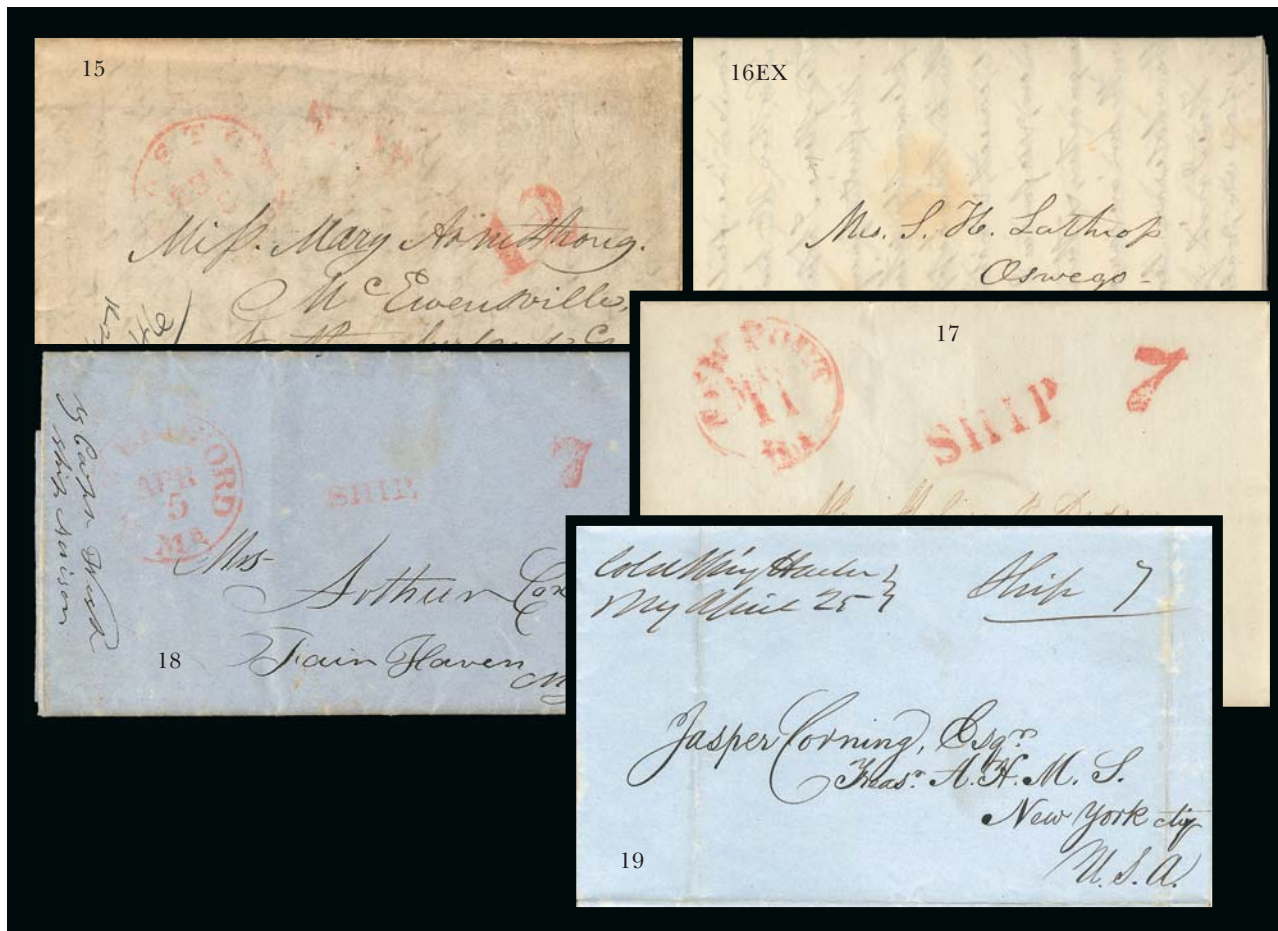 15
SHIP
12
Miss. Mary Armstrong.
McEwensville,
16EX
Mrs. S. H. Lathrop
Oswego -
17
NEWPORT
11
R.I.
SHIP
7
APR
5
Ms
SHIP
7
Mrs-
Arthur Cox
Fair Haven
18
Cold Spring Harbor
Ny April 25
Ship 7
Jasper Corning, Esqr.
Treasr. A. H. M. S.
New York city
U. S. A.
19